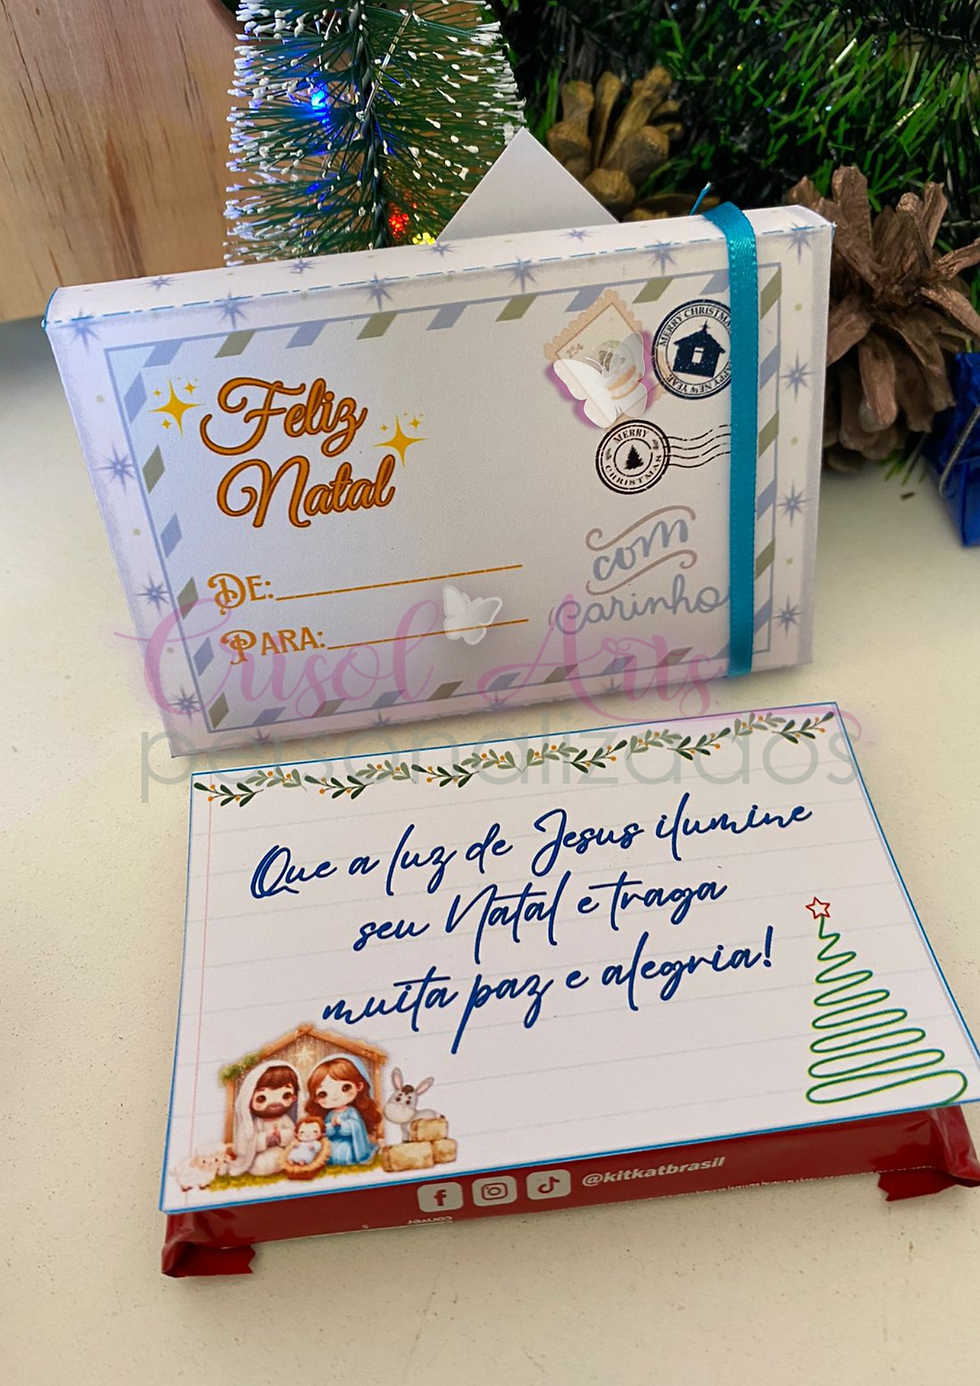 Feliz
Natal
DE:
PARA:
25¢
MERRY CHRISTMA
HAPPY NEW YEAR
MERRY
CHRISTMAS
com
carinho
Crisol Arts
personalizados
Que a luz de Jesus ilumine
seu Natal e traga
muita paz e alegria!
@kitkatbrasil